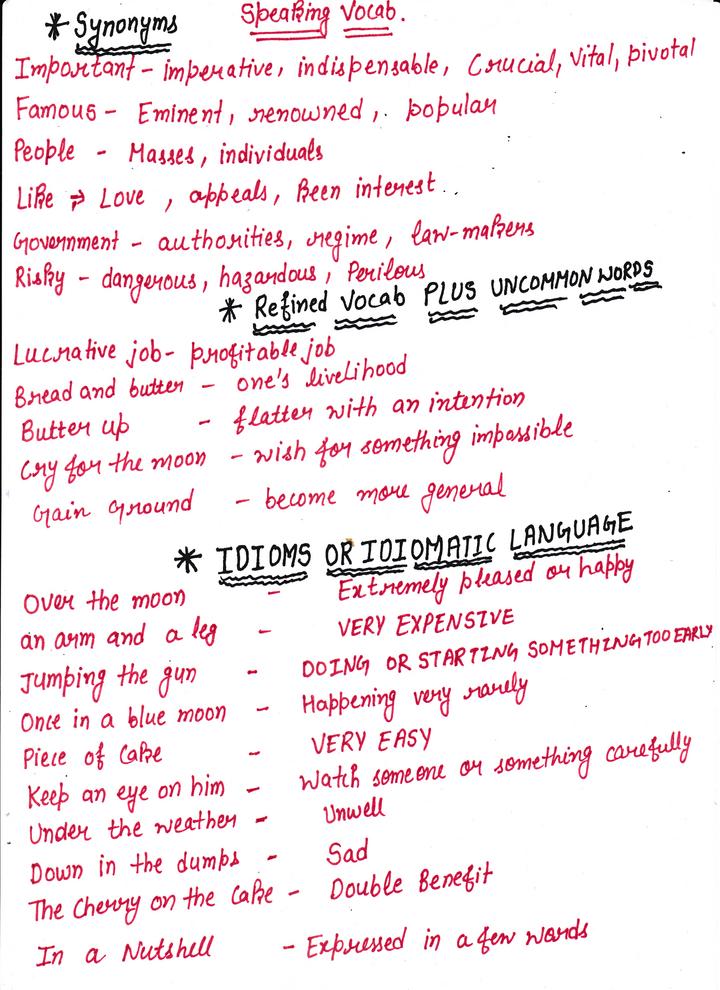 Speaking Vocab.
* Synonyms
Important - imperative, indispensable, Crucial, Vital, pivotal
Famous - Eminent, renowned, popular
People - Masses, individuals
Like ⇒ Love, appeals, Been interest..
Government - authorities, regime, law-makers
Risky - dangerous, hazardous, Perilous
* Refined Vocab PLUS UNCOMMON WORDS
Lucrative job - profitable job
Bread and butter - one's liveLihood
Butter up - flatter with an intention
Cry for the moon - wish for something impossible
Gain ground - become more general
* IDIOMS OR IDIOMATIC LANGUAGE
Over the moon - Extremely pleased or happy
an arm and a leg - VERY EXPENSIVE
Jumping the gun - DOING OR STARTING SOMETHING TOO EARLY
Once in a blue moon - Happening very rarely
Piece of Cake - VERY EASY
Keep an eye on him - Watch someone or something carefully
Under the weather - Unwell
Down in the dumps - Sad
The Cherry on the Cake - Double Benefit
In a Nutshell - Expressed in a few words